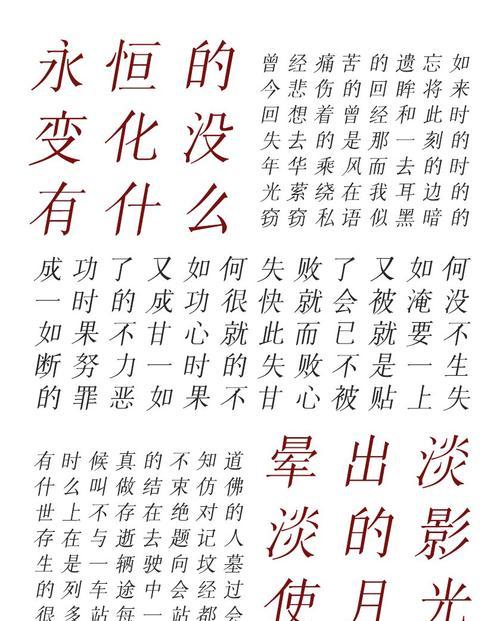 永恒的
变化没
有什么
曾经痛苦的遗忘如
今悲伤的回眸将来
回想着曾经和此时
失去的是那一刻的
年华乘风而去的时
光萦绕在我耳边的
窃窃私语似黑暗的
成功了又如何失败了又如何
一时的成功很快就会被淹没
如果不甘心就此而已就要不
断努力一时的失败不是一生
的罪恶如果不甘心被贴上失
有时候真的不知道
什么叫做结束仿佛
世上不存在绝对的
存在与逝去题记人
生是一辆驶向坟墓
的列车途中会经过
很多站每一站都会
晕出淡
淡的影
使月光